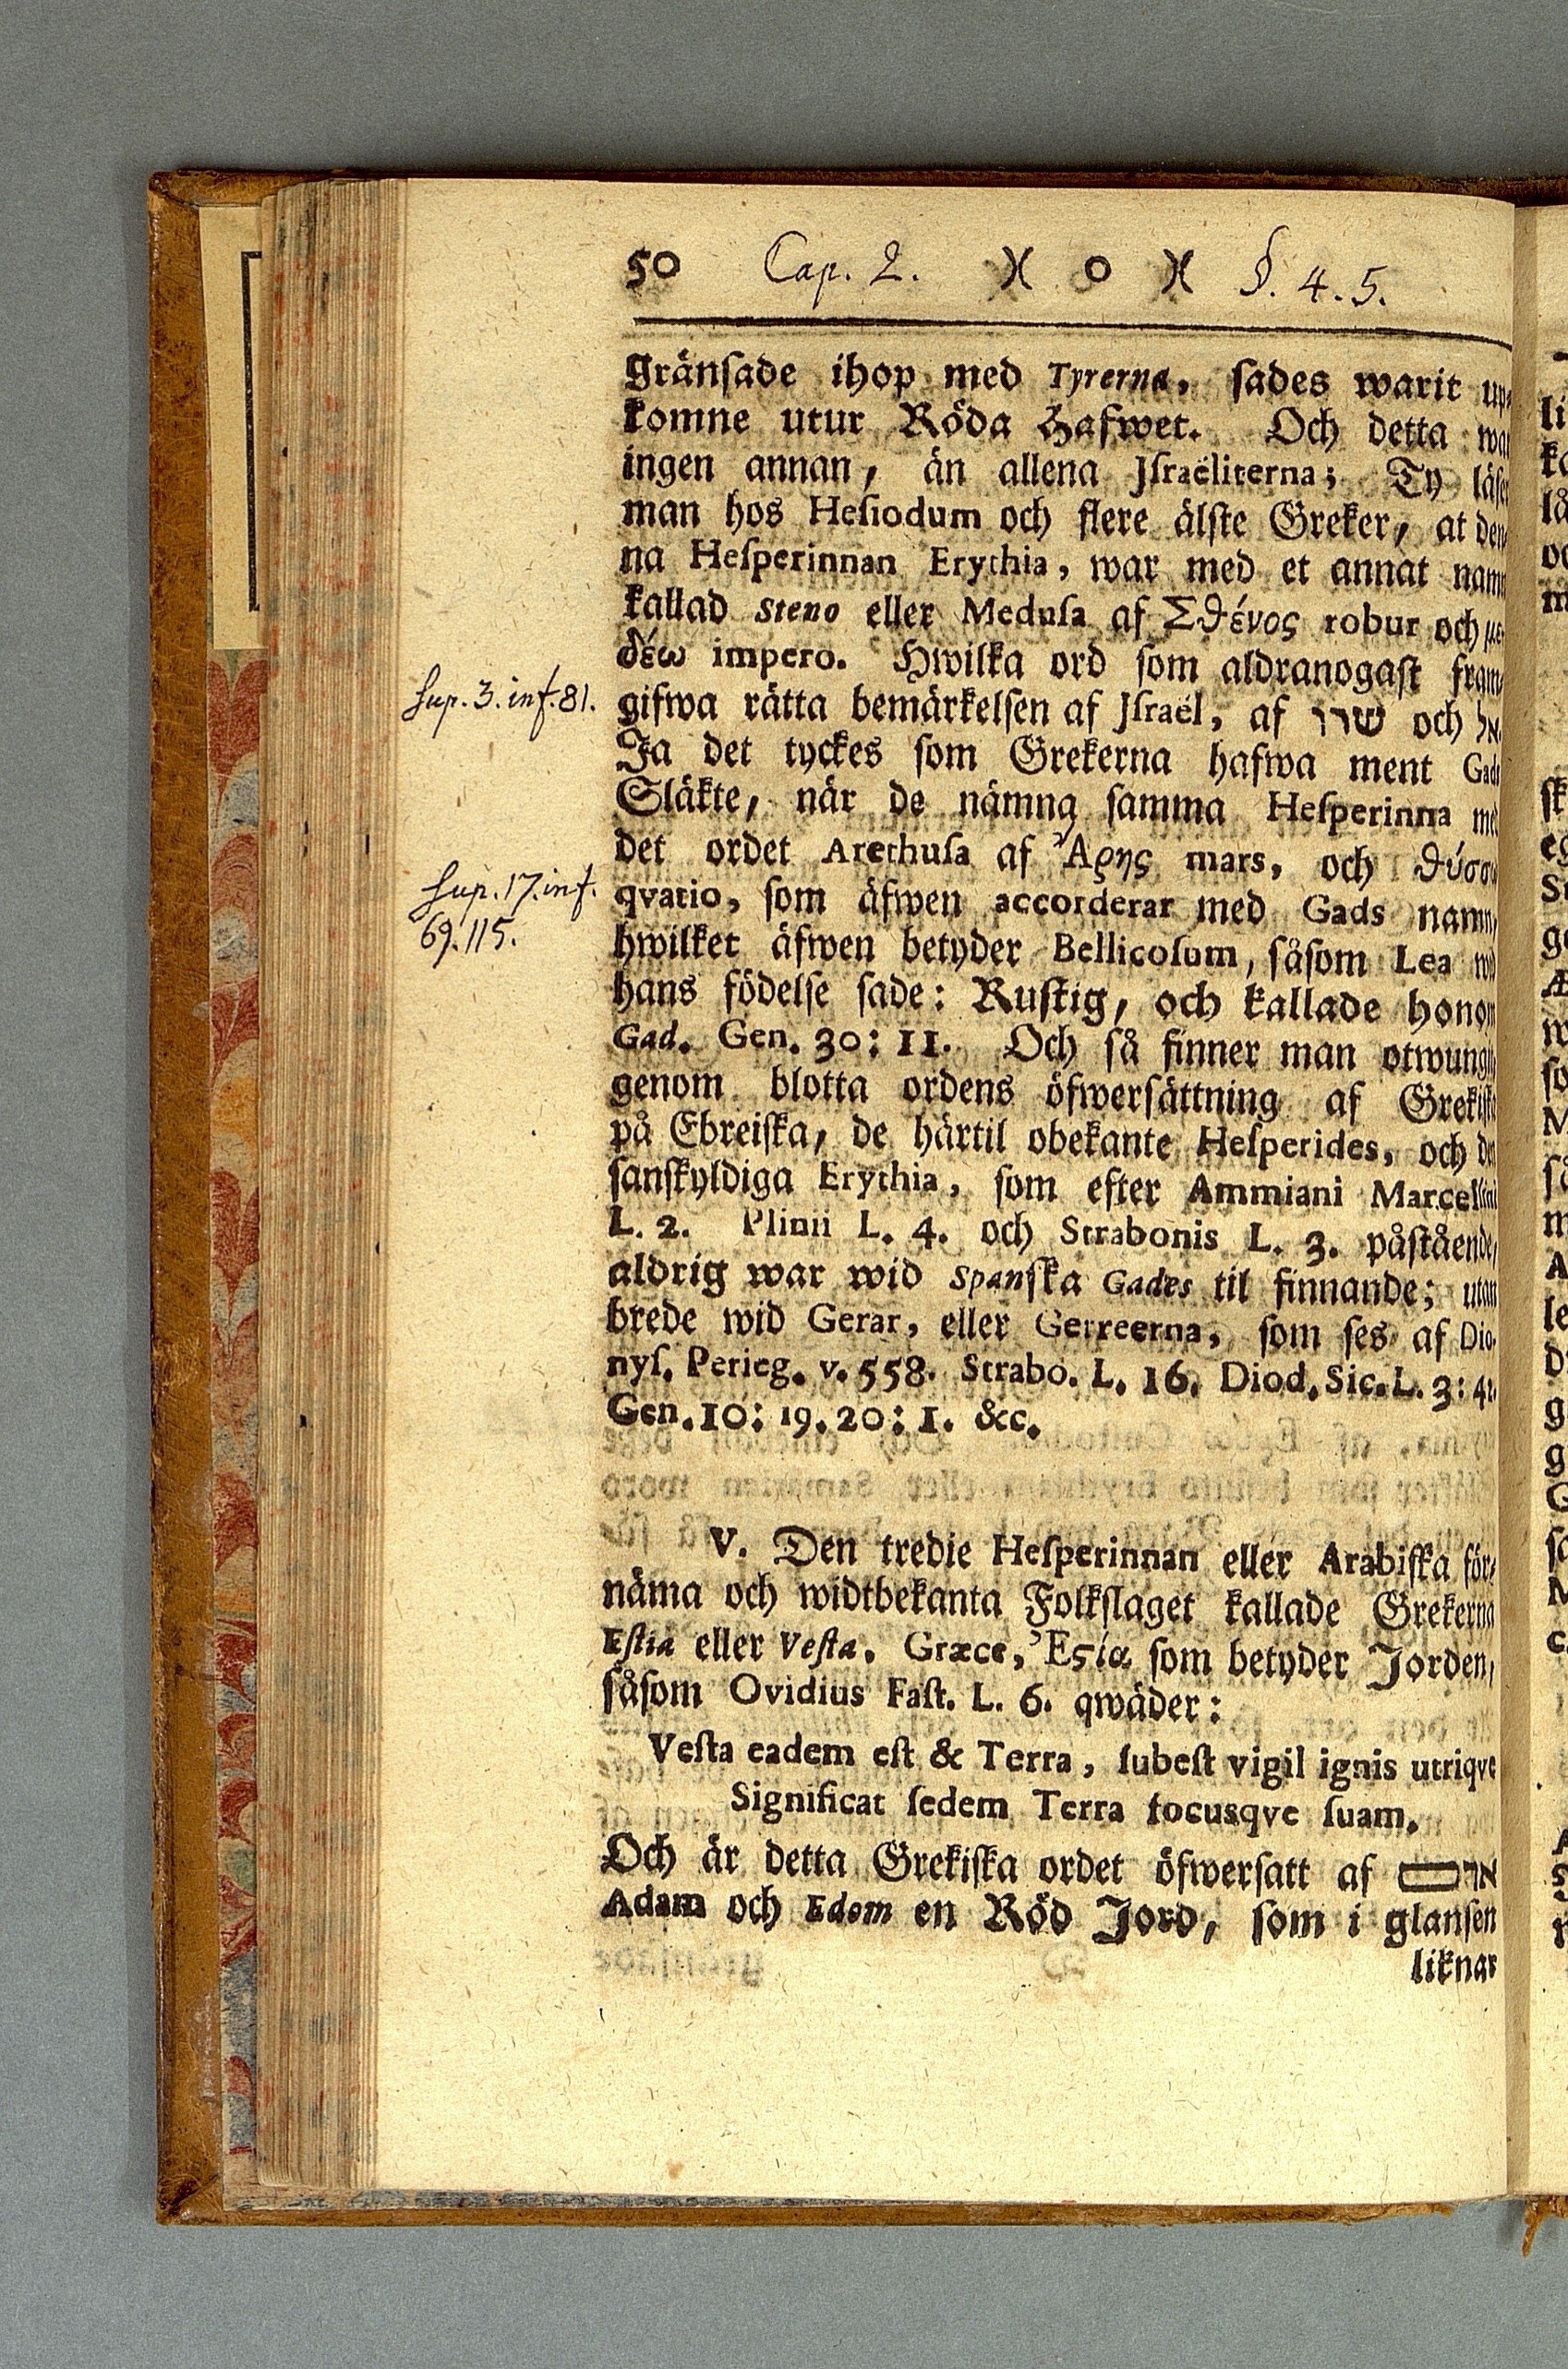 50 Cap. 2. )( o )( §. 4. 5.
gränſade ihop med Tyrerna, ſades warit up-
komne utur Röda Hafwet. Och detta war
ingen annan, än allena Jſraëliterna; Ty läſer
man hos Heſiodum och flere älſte Greker, at den-
na Heſperinnan Erythia, war med et annat namn
kallad Steno eller Meduſa af Σθένος robur och με-
δέω impero. Hwilka ord ſom aldranogaſt fram-
Sup. 3. inf. 81.
gifwa rätta bemärkelſen af Jſraël, af שרר och אל.
Ja det tyckes ſom Grekerna hafwa ment Gads
Släkte, när de nämna ſamma Heſperinna med
det ordet Arethuſa af Ἄρης mars, och θύσσω
Sup. 17. inf.
69. 115.
qvatio, ſom äfwen accorderar med Gads namn,
hwilket äfwen betyder Bellicoſum, ſåſom Lea wid
hans födelſe ſade: Ruſtig, och kallade honom
Gad. Gen. 30: 11. Och ſå finner man otwungit
genom blotta ordens öfwerſättning af Grekiſka
på Ebreiſka, de härtil obekante Heſperides, och den
ſanſkyldiga Erythia, ſom efter Ammiani Marcellini
L. 2. Plinii L. 4. och Strabonis L. 3. påſtående,
aldrig war wid Spanſka Gades til finnande; utan
brede wid Gerar, eller Gerreerna, ſom ſes af Dio-
nyſ. Perieg. v. 558. Strabo. L. 16. Diod. Sic. L. 3: 41.
Gen. 10: 19. 20: 1. &c.
V. Den tredie Heſperinnan eller Arabiſka för-
näma och widtbekanta Folkſlaget kallade Grekerna
Eſtia eller Veſta. Græce, Ἐϛία ſom betyder Jorden,
ſåſom Ovidius Faſt. L. 6. qwäder:
Veſta eadem eſt & Terra, ſubeſt vigil ignis utriqve
Significat ſedem Terra focusqve ſuam.
Och är detta Grekiſka ordet öfwerſatt af אדם
Adam och Edom en Röd Jord, ſom i glanſen
liknar